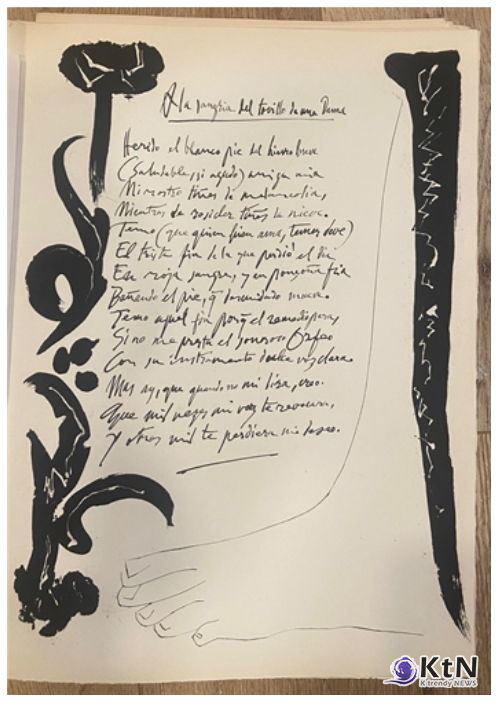 A la sangria del tovillo de una Dama
Herido el blanco pie del hierro breve
(Saludable, si agudo) amiga mia
Mi rostro tiñes de melancolia,
Mientras de rosicler tiñes la nieve.
Temo (que quien bien ama, temer deve)
El triste fin de la que perdió el dia
En roja sangre, y en ponzoña fria
Bañando el pie, q descuidado mueve.
Temo aquel fin porq el remedio para,
Si no me presta el sonoroso Orfeo
Con su instrumento dulce voz clara.
Mas ay, que quando no mi lira, creo.
Que mil vezes mi voz te revocara,
Y otras mil te perdiera mi deseo.
KtN
K-trendy NEWS